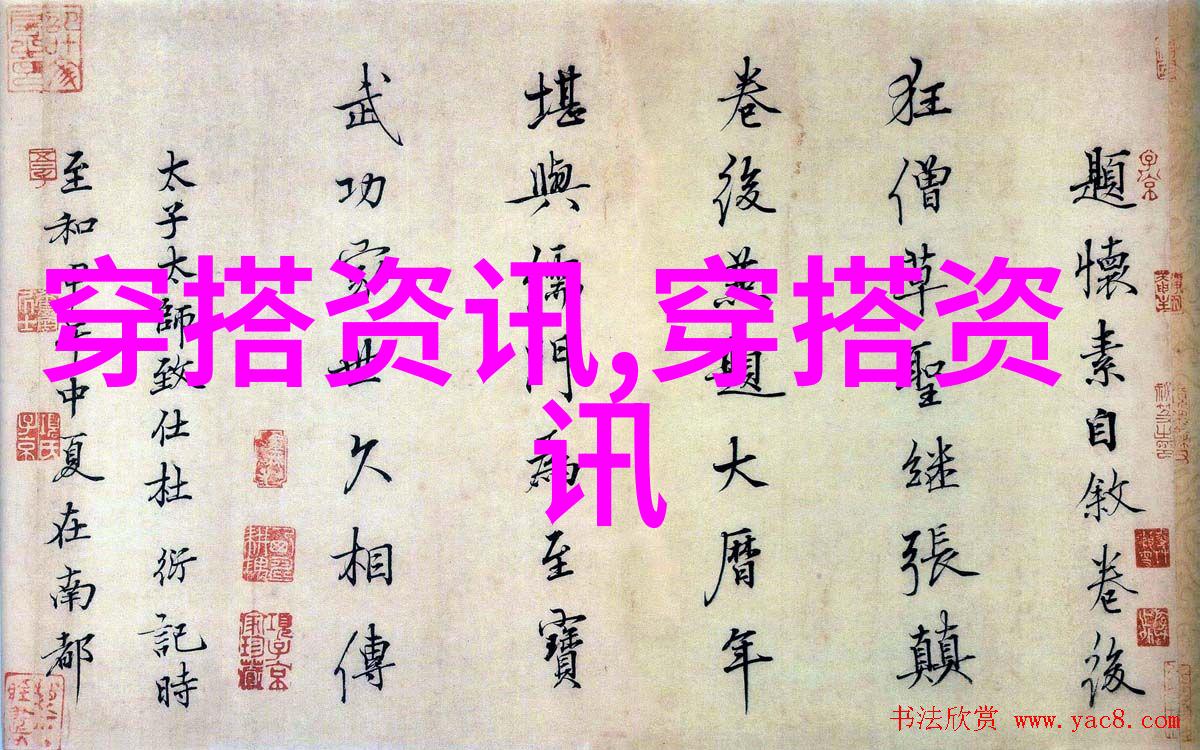 題懷素自敘卷後
狂僧草聖继張顛
卷後兼題大曆年
堪與儒門為至寶
武功家世久相傳
太子太師致仕杜 衍記時
至和甲午中夏在南都
穿搭资讯,穿搭资
讯
书法欣赏 www.yac8.com